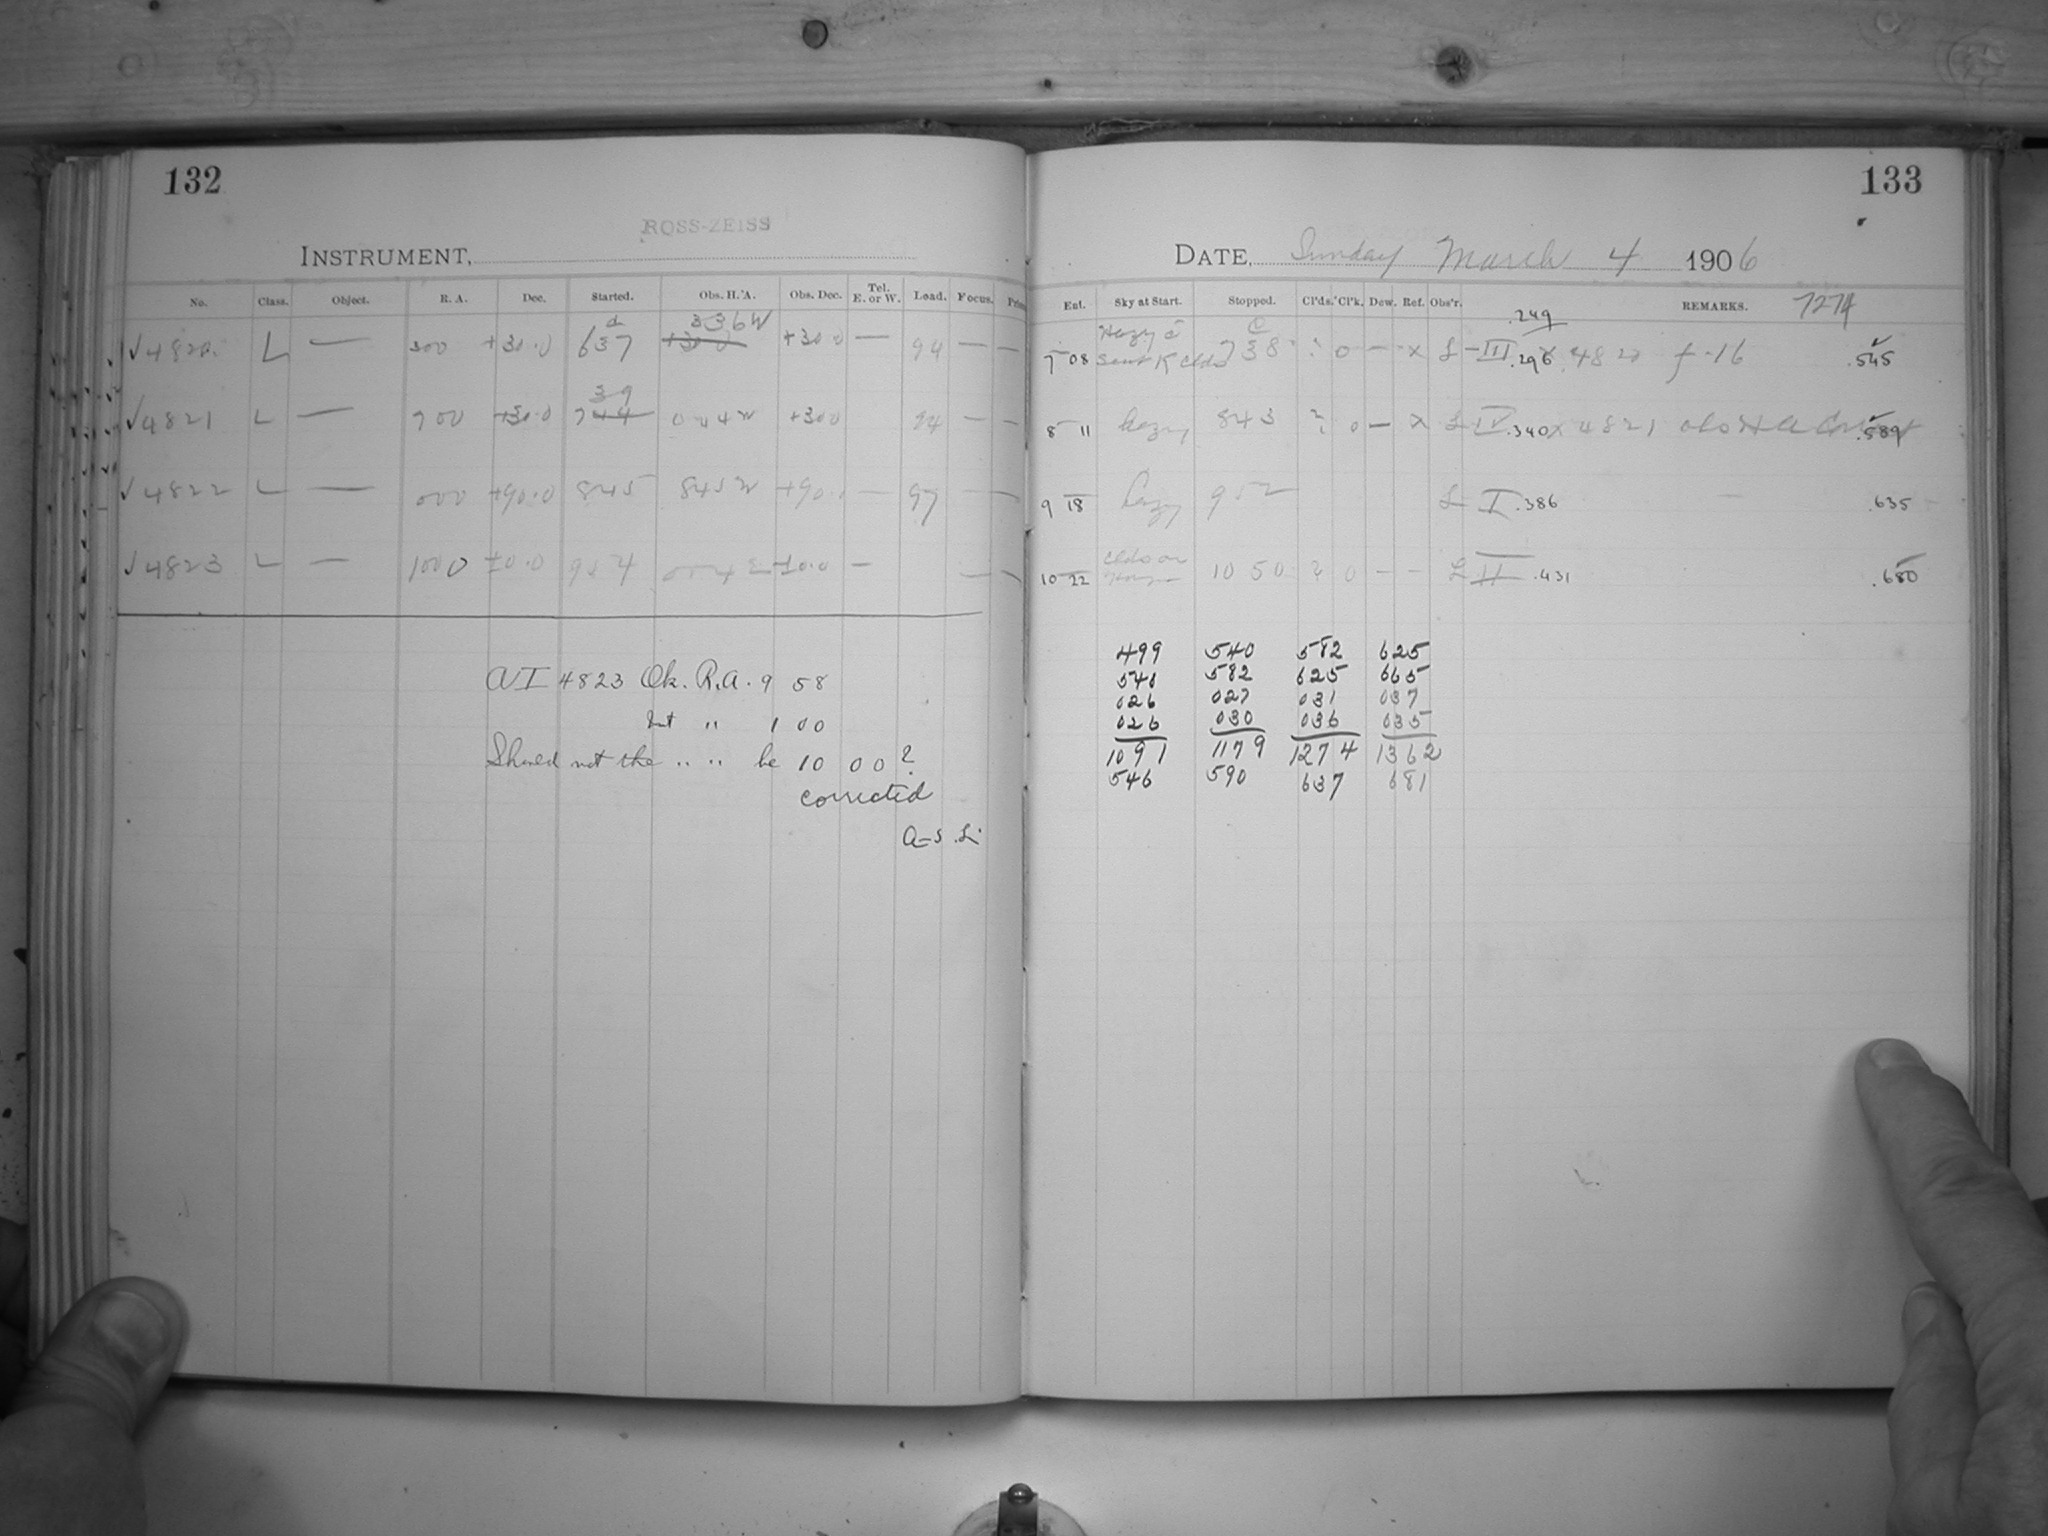 132
ROSS-ZEISS
INSTRUMENT,
No. Class. Object. R. A. Dec. Started. Obs. H.'A. Obs. Dec. Tel. E. or W. Load. Focus.
√4820 L — 300 +30.0 637 336W +30.0 — 94 — —
√4821 L — 700 +30.0 39 744 044W +300 94 — —
√4822 L — 000 +90.0 845 845W +90. — 97 — —
√4823 L — 1000 ±0.0 954 ±0.0 — — —
AI 4823 Ok. R.A. 9 58
but " 1 00
Should not the " " be 10 00?
corrected
133
DATE, Sunday March 4 1906
Ent. Sky at Start. Stopped. Cl'ds. Cl'k. Dew. Ref. Obs'r. REMARKS. 7274
.249
7 08 Hazy 738 ? 0 — x L III .296 x 4820 f. 16 .545
8 11 hazy 843 ? 0 — x L IV .340 x 4821 .589
9 18 hazy 952 L I .386 .635
10 22 1050 ? 0 — — L II .431 .680
499 540 582 625
540 582 625 665
026 027 031 037
026 030 036 035
1091 1179 1274 1362
546 590 637 681